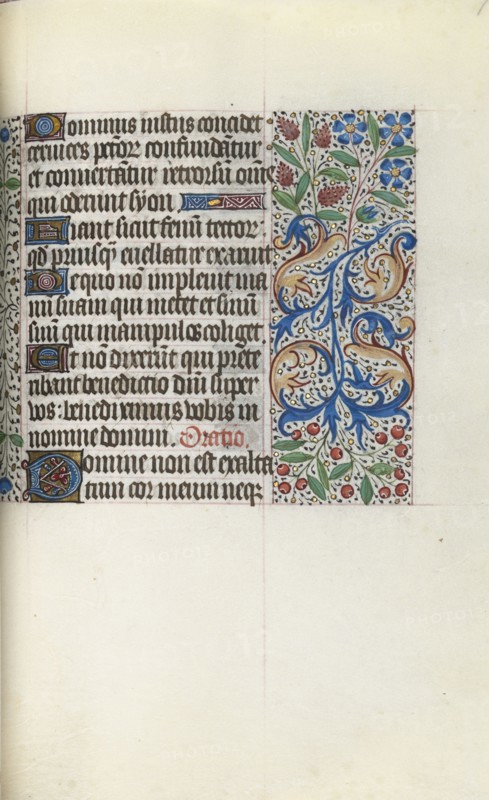 Dominus iustus concidet
ceruices pctõrꝝ confundãtur
et conuertãtur retrorsũ om̃e
qui oderunt syon
Fiant sicut fenũ tector
qd priusq̃ euellatur exaruit
De quo nõ impleuit ma
nũ suam qui metet et sinũ
suũ qui manipulos coliget.
Et nõ dixerũt qui prete
ribant benedictio dñi super
vos: benediximus vobis in
nomine domini. Oratio.
Domine non est exalta
tum cor meum neqꝫ